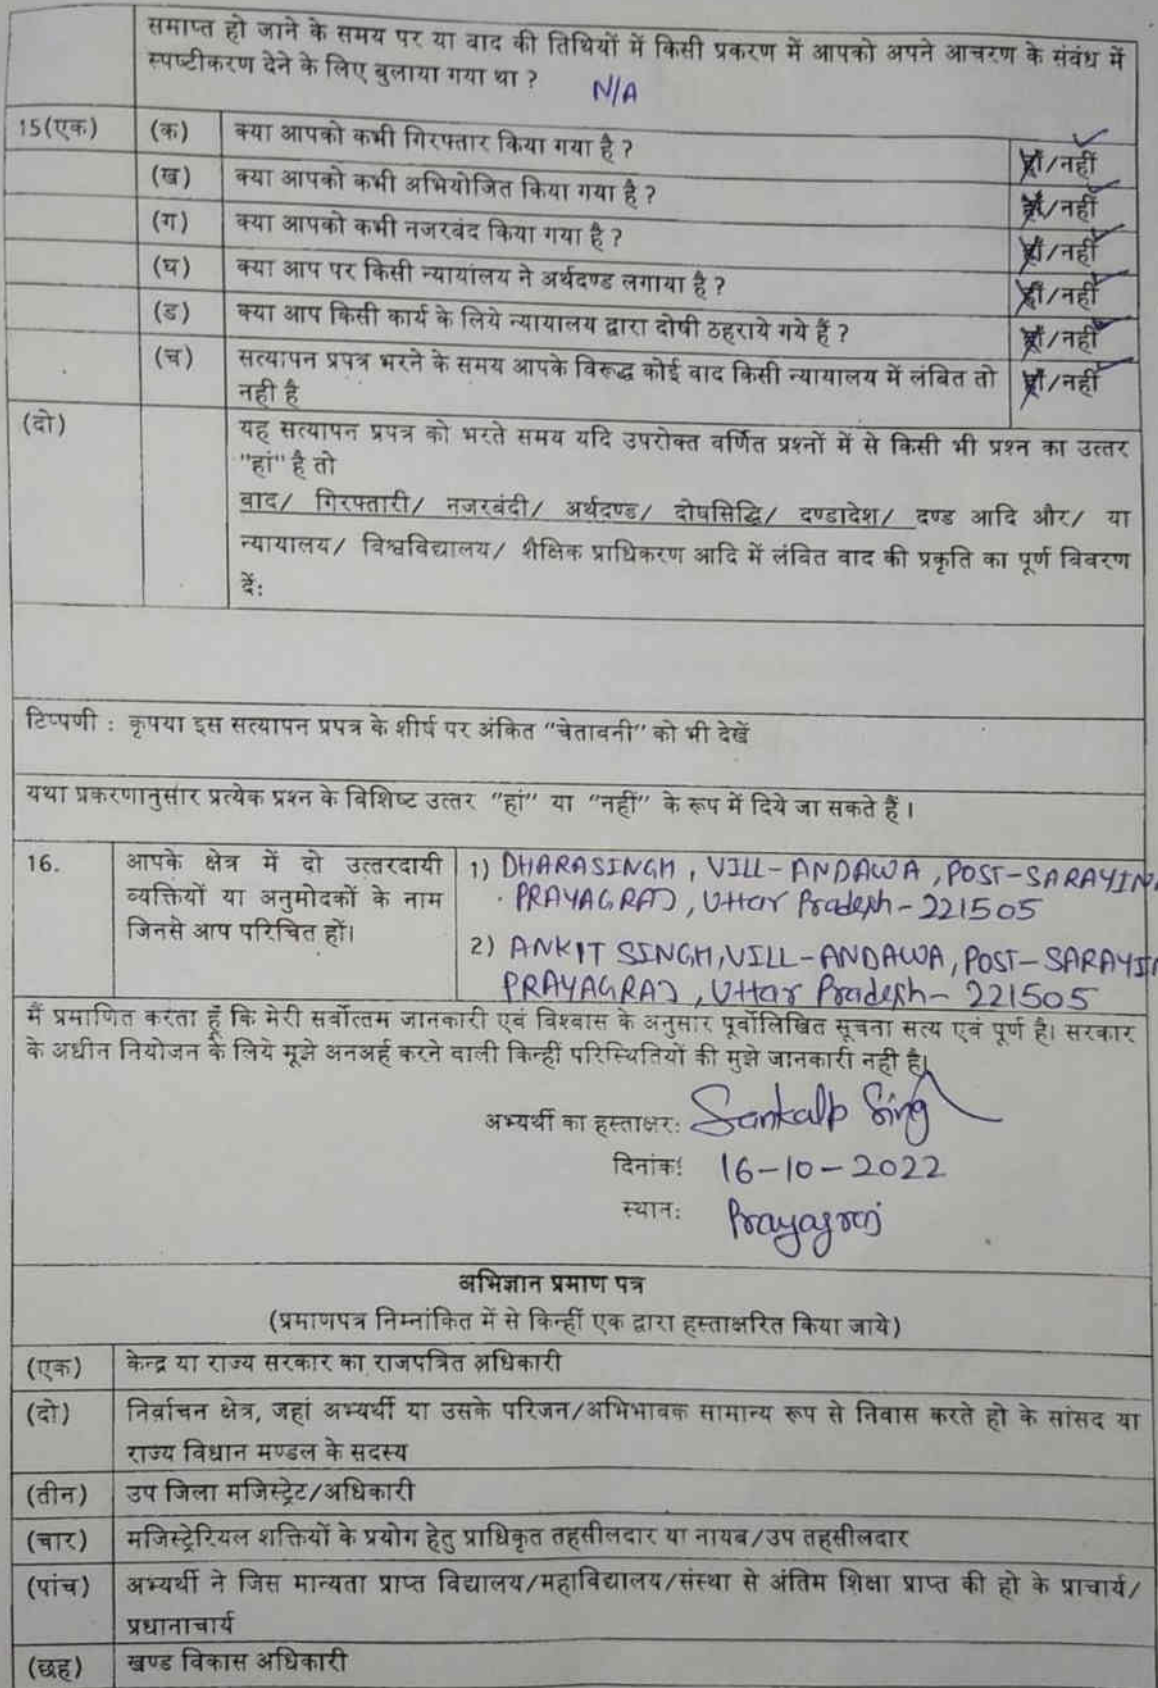 समाप्त हो जाने के समय पर या वाद की तिथियों में किसी प्रकरण में आपको अपने आचरण के संबंध में
स्पष्टीकरण देने के लिए बुलाया गया था ? N/A
15(एक) (क) क्या आपको कभी गिरफ्तार किया गया है ? हां/नहीं
(ख) क्या आपको कभी अभियोजित किया गया है ? हां/नहीं
(ग) क्या आपको कभी नजरबंद किया गया है ? हां/नहीं
(घ) क्या आप पर किसी न्यायांलय ने अर्थदण्ड लगाया है ? हां/नहीं
(ड) क्या आप किसी कार्य के लिये न्यायालय द्वारा दोषी ठहराये गये हैं ? हां/नहीं
(च) सत्यापन प्रपत्र भरने के समय आपके विरूद्ध कोई वाद किसी न्यायालय में लंबित तो हां/नहीं
नही है
(दो) यह सत्यापन प्रपत्र को भरते समय यदि उपरोक्त वर्णित प्रश्नों में से किसी भी प्रश्न का उत्तर
"हां" है तो
वाद/ गिरफ्तारी/ नजरबंदी/ अर्थदण्ड/ दोषसिद्धि/ दण्डादेश/ दण्ड आदि और/ या
न्यायालय/ विश्वविद्यालय/ शैक्षिक प्राधिकरण आदि में लंबित वाद की प्रकृति का पूर्ण विवरण
दें:
टिप्पणी : कृपया इस सत्यापन प्रपत्र के शीर्ष पर अंकित "चेतावनी" को भी देखें
यथा प्रकरणानुसार प्रत्येक प्रश्न के विशिष्ट उत्तर "हां" या "नहीं" के रूप में दिये जा सकते हैं।
16. आपके क्षेत्र में दो उत्तरदायी
व्यक्तियों या अनुमोदकों के नाम
जिनसे आप परिचित हों।
1) DHARASINGH, VILL-ANDAWA, POST-SARAYIN
PRAYAGRAJ, Uttar Pradesh-221505
2) ANKIT SINGH, VILL-ANDAWA, POST-SARAYIN
PRAYAGRAJ, Uttar Pradesh-221505
मैं प्रमाणित करता हूँ कि मेरी सर्वोत्तम जानकारी एवं विश्वास के अनुसार पूर्वोलिखित सूचना सत्य एवं पूर्ण है। सरकार
के अधीन नियोजन के लिये मूझे अनअर्ह करने वाली किन्हीं परिस्थितियों की मुझे जानकारी नही है।
अभ्यर्थी का हस्ताक्षर: Sankalp Sing
दिनांक: 16-10-2022
स्थान: Prayagraj
अभिज्ञान प्रमाण पत्र
(प्रमाणपत्र निम्नांकित में से किन्हीं एक द्वारा हस्ताक्षरित किया जाये)
(एक) केन्द्र या राज्य सरकार का राजपत्रित अधिकारी
(दो) निर्वाचन क्षेत्र, जहां अभ्यर्थी या उसके परिजन/अभिभावक सामान्य रूप से निवास करते हो के सांसद या
राज्य विधान मण्डल के सदस्य
(तीन) उप जिला मजिस्ट्रेट/अधिकारी
(चार) मजिस्ट्रेरियल शक्तियों के प्रयोग हेतु प्राधिकृत तहसीलदार या नायब/उप तहसीलदार
(पांच) अभ्यर्थी ने जिस मान्यता प्राप्त विद्यालय/महाविद्यालय/संस्था से अंतिम शिक्षा प्राप्त की हो के प्राचार्य/
प्रधानाचार्य
(छह) खण्ड विकास अधिकारी